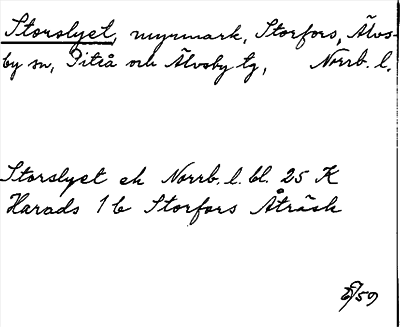 Storslyet, myrmark, Storfors, Älvs-
by sn, Piteå och Älvsby tg, Norrb. l.
Storslyet ek Norrb. l. bl. 25 K
Harads 1 b Storfors Åträsk
E/59